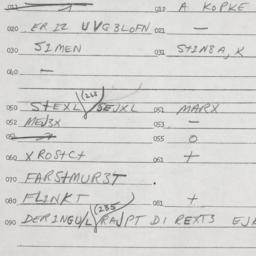 011 — 012 A KOPKE
020 ER IZ UVGBLOFN 021 —
030 SIMEN 031 STINBA, K
040 —
(268)
050 STEXL / SEJXL 051 MARX
052 MEJ3X 053 —
055 O
060 XROSTCT 061 +
070 FARSTMURST .
080 FLINKT 081 +
(285)
090 DERINGU/L / RAJPT DI REXTS EJ